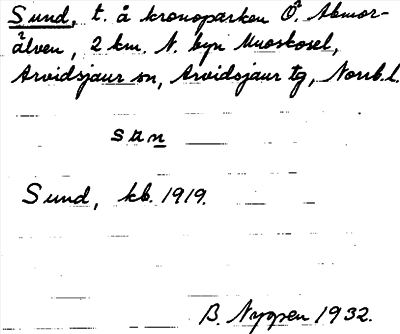 Sund, t. å kronoparken Ö. Abmor-
älven, 2 km. N. byn Muoskosel,
Arvidsjaur sn, Arvidsjaur tg, Norrb. l.
Sund, kb. 1919.
B. Nygren 1932.